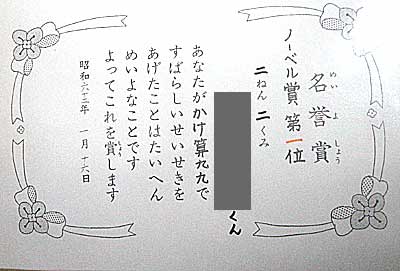 名誉賞
めい よ しょう
ノーベル賞 第一位
二ねん 二くみ
くん
あなたがかけ算九九で
すばらしいせいせきを
あげたことはたいへん
めいよなことです
よってこれを賞します
しょう
昭和六十三年 一月 十六日